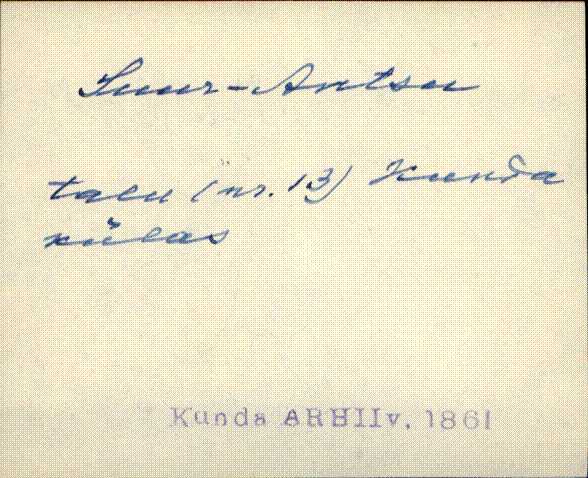 Suur-Antsu
talu (nr. 13) Kunda
külas
Kunda ARHIIv, 1861